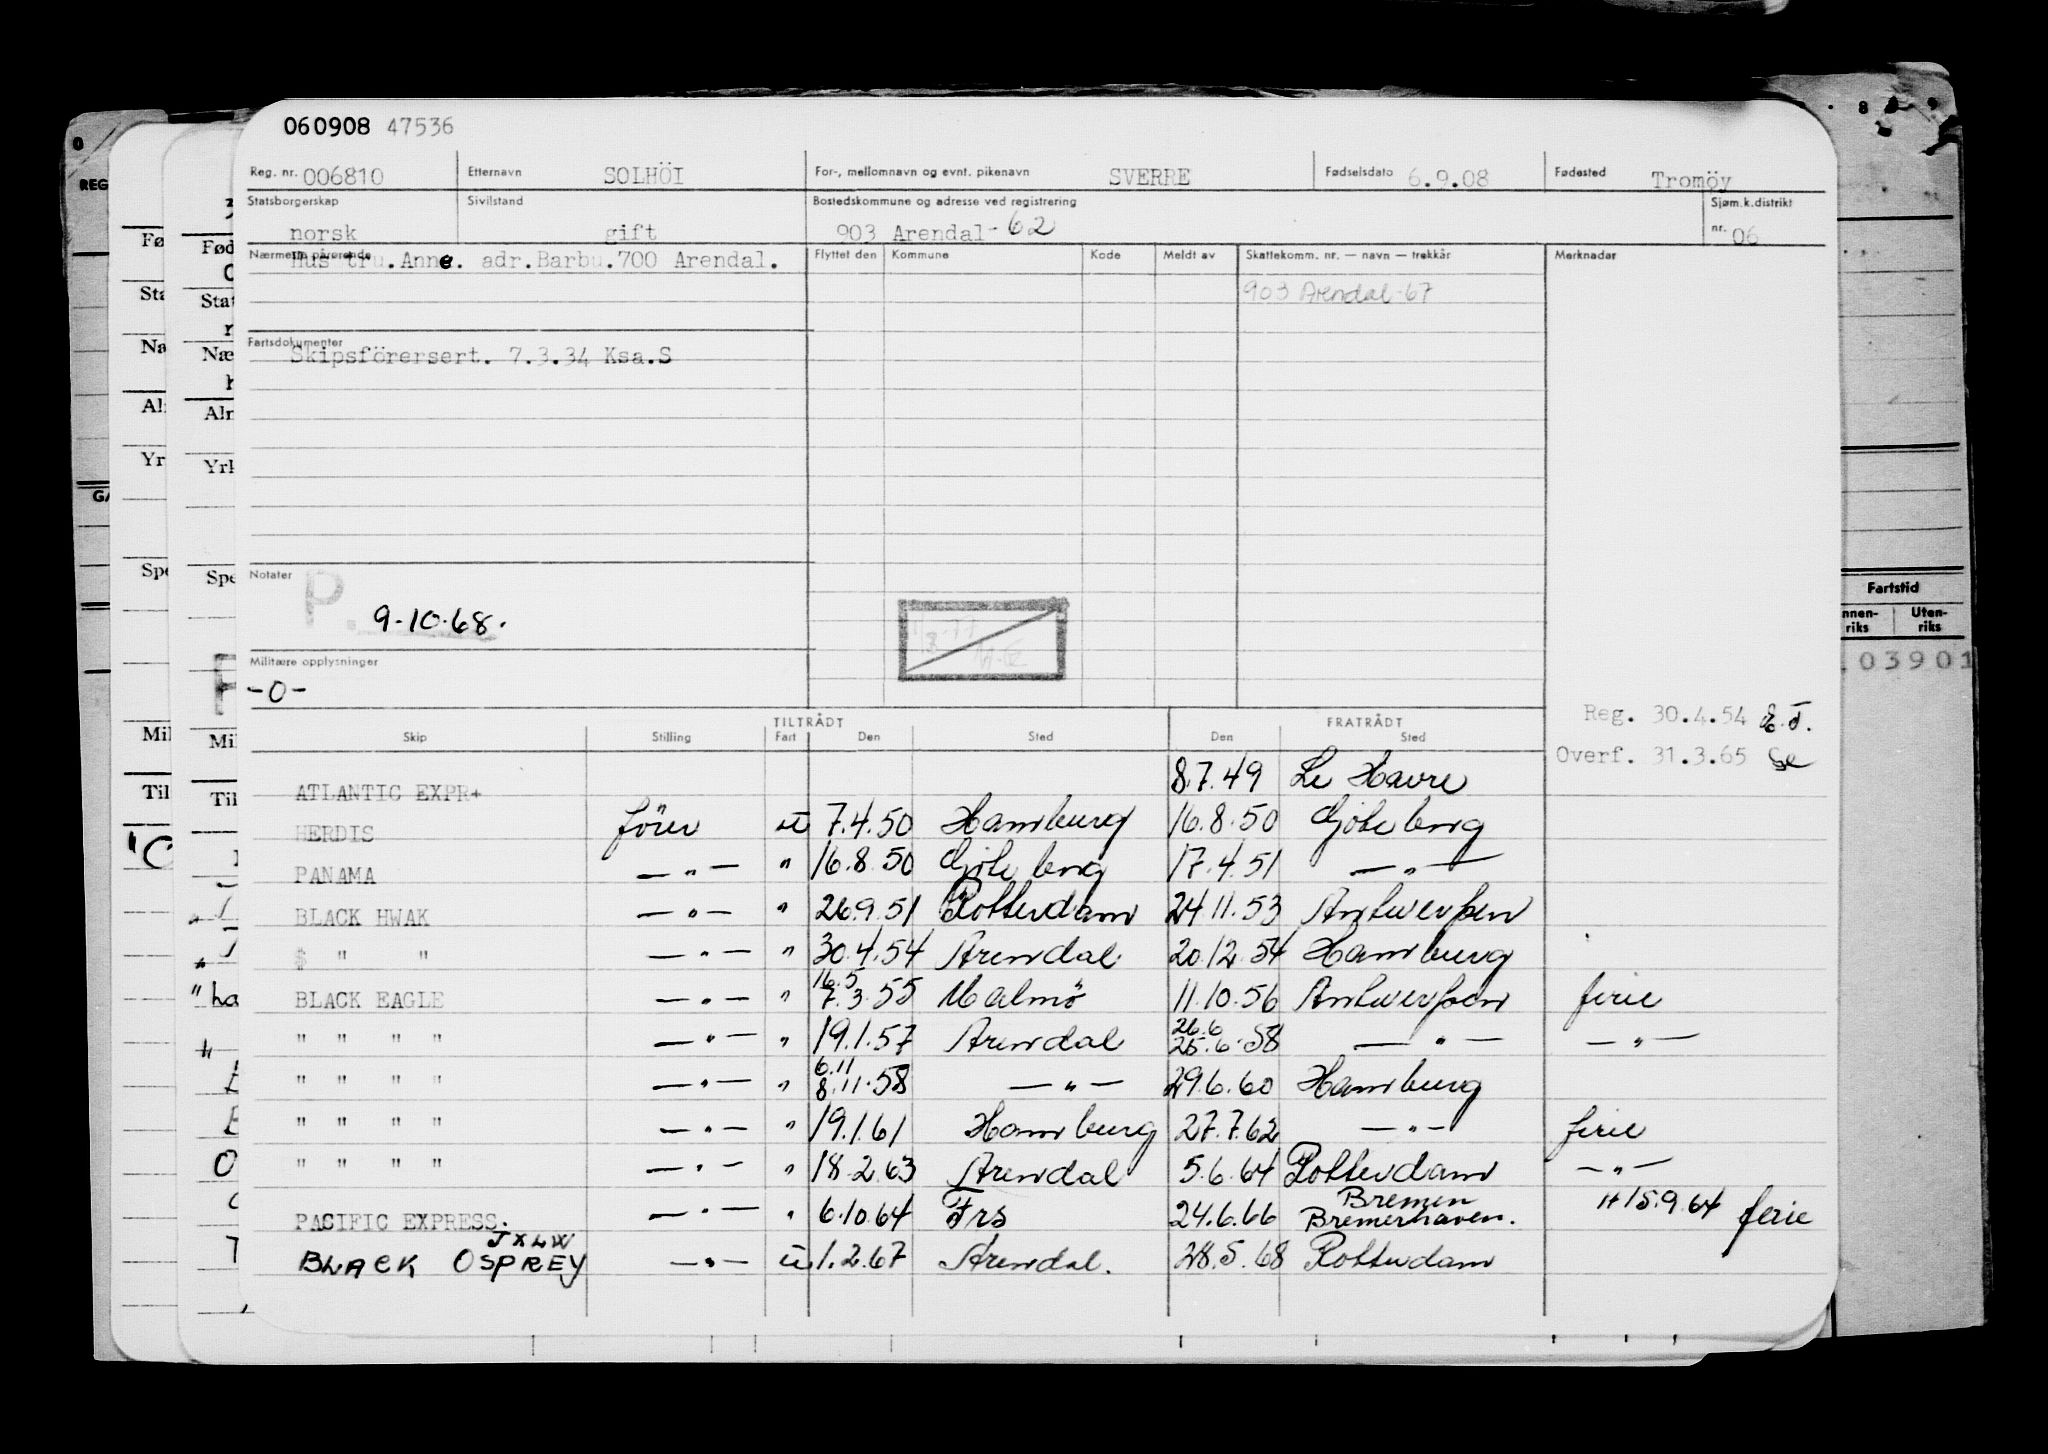 060908 47536
Reg. nr. 006810 Etternavn SOLHÖI For-, mellomnavn og evnt. pikenavn SVERRE Fødselsdato 6.9.08 Fødested Tromöy
Statsborgerskap Sivilstand Bostedskommune og adresse ved registrering Sjøm.k.distrikt
norsk gift 903 Arendal-62 nr. 06
Nærmeste pårørende Hustru.Anne. adr.Barbu.700 Arendal. Flyttet den Kommune Kode Meldt av Skattekomm. nr. — navn — trekkår Merknader
903 Arendal-67
Fartsdokumenter
Skipsförersert. 7.3.34 Ksa.S
Notater P.
9.10.68.
Militære opplysninger
-0-
Reg. 30.4.54 E.T.
Overf. 31.3.65
TILTRÅDT FRATRÅDT
Skip Stilling Fart Den Sted Den Sted
ATLANTIC EXPR+ 8.7.49 Le Havre
HERDIS förer u 7.4.50 Hamburg 16.8.50 Gjöteberg
PANAMA —"— " 16.8.50 Gjöteberg 17.4.51 —"—
BLACK HWAK —"— " 26.9.51 Rotterdam 24.11.53 Antwerpen
$ " " —"— " 30.4.54 Arendal 20.12.54 Hamburg
BLACK EAGLE —"— " 16.5 7.3.55 Malmö 11.10.56 Antwerpen ferie
" " " " —"— " 19.1.57 Arendal 26.6 25.6.58 —"— —"—
" " " " —"— " 6.11 8.11.58 —"— 29.6.60 Hamburg
" " " " —"— " 19.1.61 Hamburg 27.7.62 —"— ferie
" " " " —"— " 18.2.63 Arendal 5.6.64 Rotterdam —"—
PACIFIC EXPRESS. —"— " 6.10.64 Frs 24.6.66 Bremen Bremerhaven. 15.9.64 ferie
JXLW
BLACK OSPREY —"— u 1.2.67 Arendal. 28.5.68 Rotterdam
Fartstid
Uten-
riks riks
03901